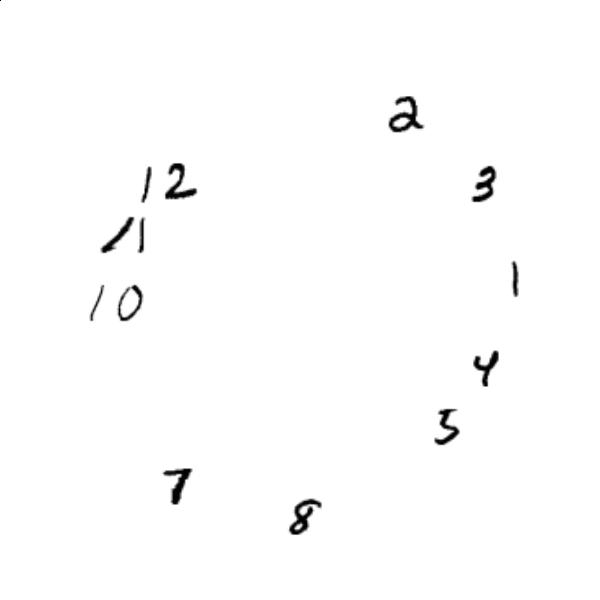 2
12
3
11
1
10
4
5
7
8